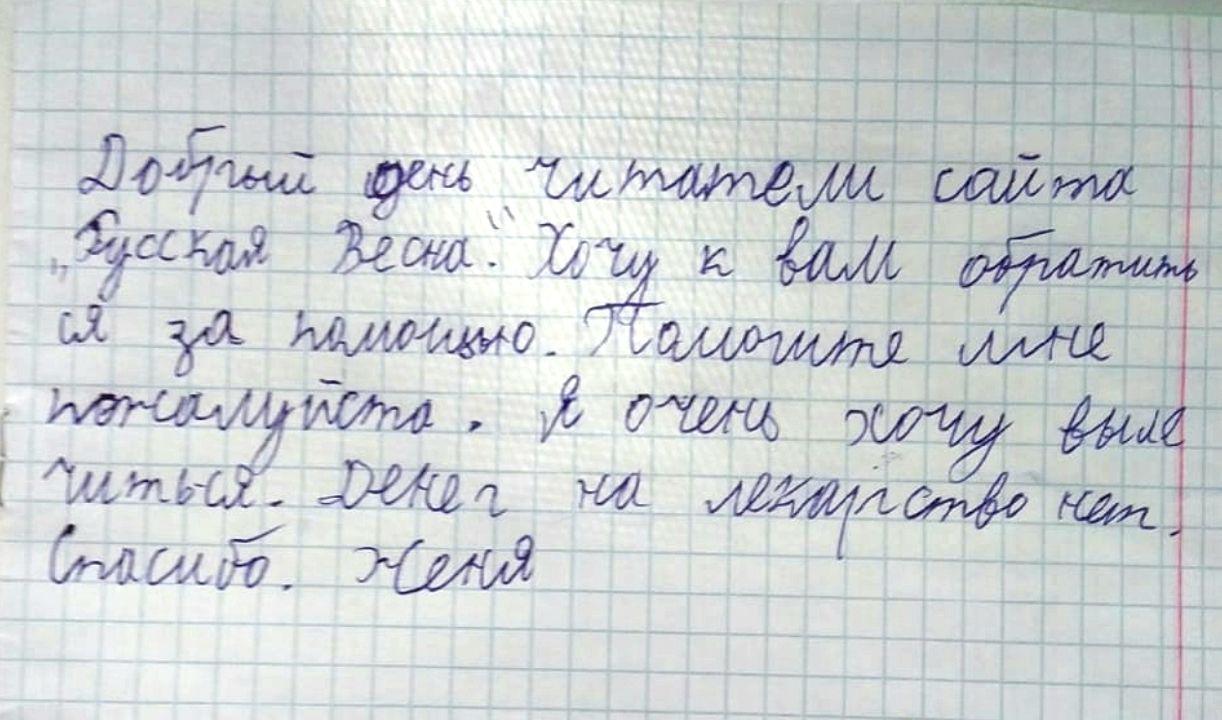 Добрый день читатели сайта
„Русская Весна." Хочу к вам обратить
ся за помощью. Помогите мне
пожалуйста. Я очень хочу выле
читься. Денег на лекарство нет.
Спасибо. Женя